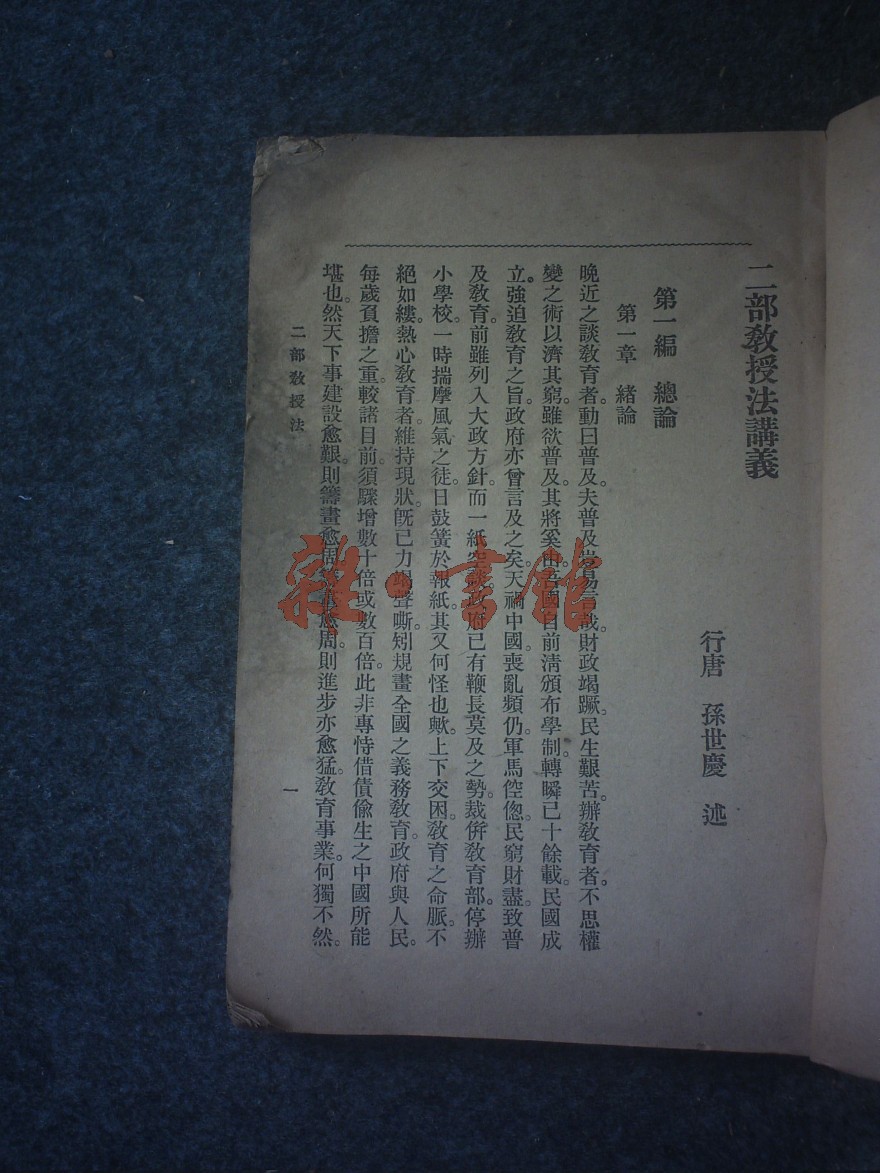 二部教授法講義
行唐 孫世慶 述
第一編 總論
第一章 緒論
晚近之談教育者。動曰普及。夫普及豈易言哉。財政竭蹶。民生艱苦。辦教育者。不思權
變之術以濟其窮。雖欲普及。其將奚由。吾國自前淸頒布學制。轉瞬已十餘載。民國成
立。強迫教育之旨。政府亦曾言及之矣。天禍中國。喪亂頻仍。軍馬倥傯。民窮財盡。致普
及教育。前雖列入大政方針。而一紙空談。政府已有鞭長莫及之勢。裁倂教育部。停辦
小學校。一時揣摩風氣之徒。日鼓簧於報紙。其又何怪也歟。上下交困。教育之命脈。不
絕如縷。熱心教育者。維持現狀。旣已力竭聲嘶。矧規畫全國之義務教育。政府與人民。
每歲負擔之重。較諸目前。須驟增數十倍或數百倍。此非專恃借債偸生之中國所能
堪也。然天下事建設愈艱。則籌畫愈周。愈周。則進步亦愈猛。教育事業。何獨不然。
二部教授法
一
雜·書館